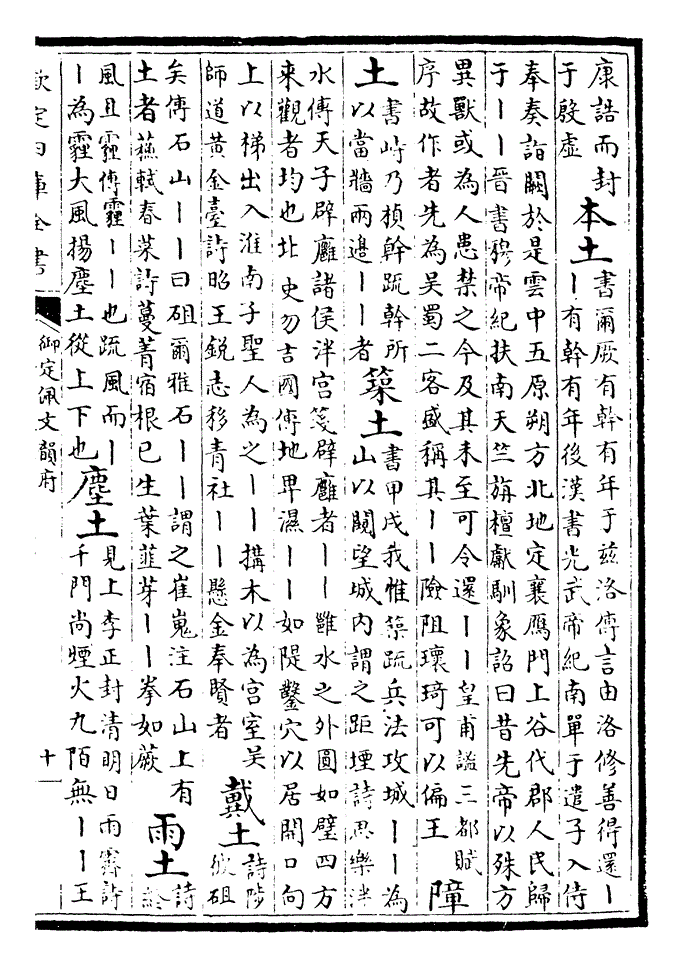 康誥而封
于殷虛
本土
書爾厥有幹有年于兹洛傳言由洛修善得還丨
丨有幹有年後漢書光武帝紀南單于遣子入侍
奉奏詣闕於是雲中五原朔方北地定襄鴈門上谷代郡人民歸
于丨丨晉書穆帝紀扶南天竺旃檀獻馴象詔曰昔先帝以殊方
異獸或為人患禁之今及其未至可令還丨丨皇甫謐三都賦
序故作者先為吴蜀二客盛稱其丨丨險阻瓌琦可以偏王
障
土
書峙乃楨幹疏幹所
以當牆兩邉丨丨者
築土
書甲戌我惟築疏兵法攻城丨丨為
山以闚望城内謂之距堙詩思樂泮
水傳天子辟廱諸侯泮宫箋辟廱者丨丨雝水之外圓如璧四方
來觀者均也北史勿吉國傳地卑濕丨丨如隄鑿穴以居開口向
上以梯出入淮南子聖人為之丨丨搆木以為宫室吴
師道黄金臺詩昭王鋭志移青社丨丨懸金奉賢者
戴土
詩陟
彼砠
矣傳石山丨丨曰砠爾雅石丨丨謂之崔嵬注石山上有
土者蘇軾春菜詩蔓菁宿根已生葉韮芽丨丨拳如蕨
雨土
詩
終
風且霾傳霾丨丨也疏風而丨
丨為霾大風揚塵土從上下也
塵土
見上李正封清明日雨霽詩
千門尚煙火九陌無丨丨王
欽定四庫全書
御定佩文韻府
十